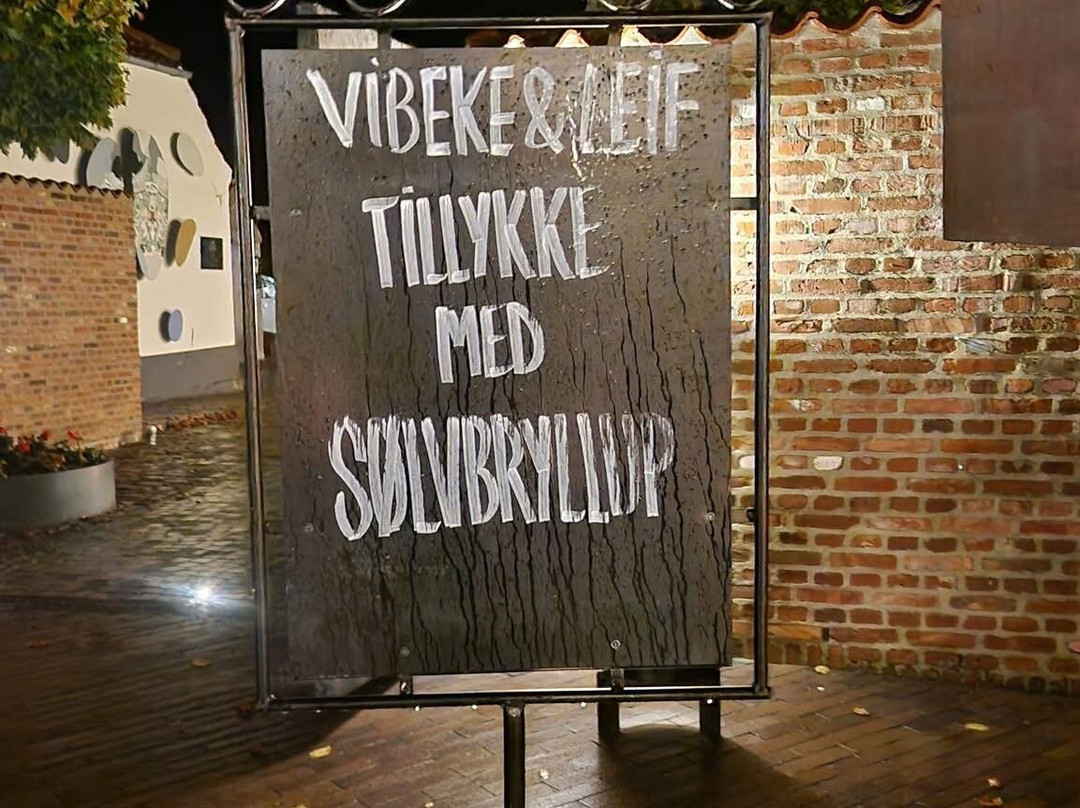 VIBEKE & LEIF
TILLYKKE
MED
SØLVBRYLLUP